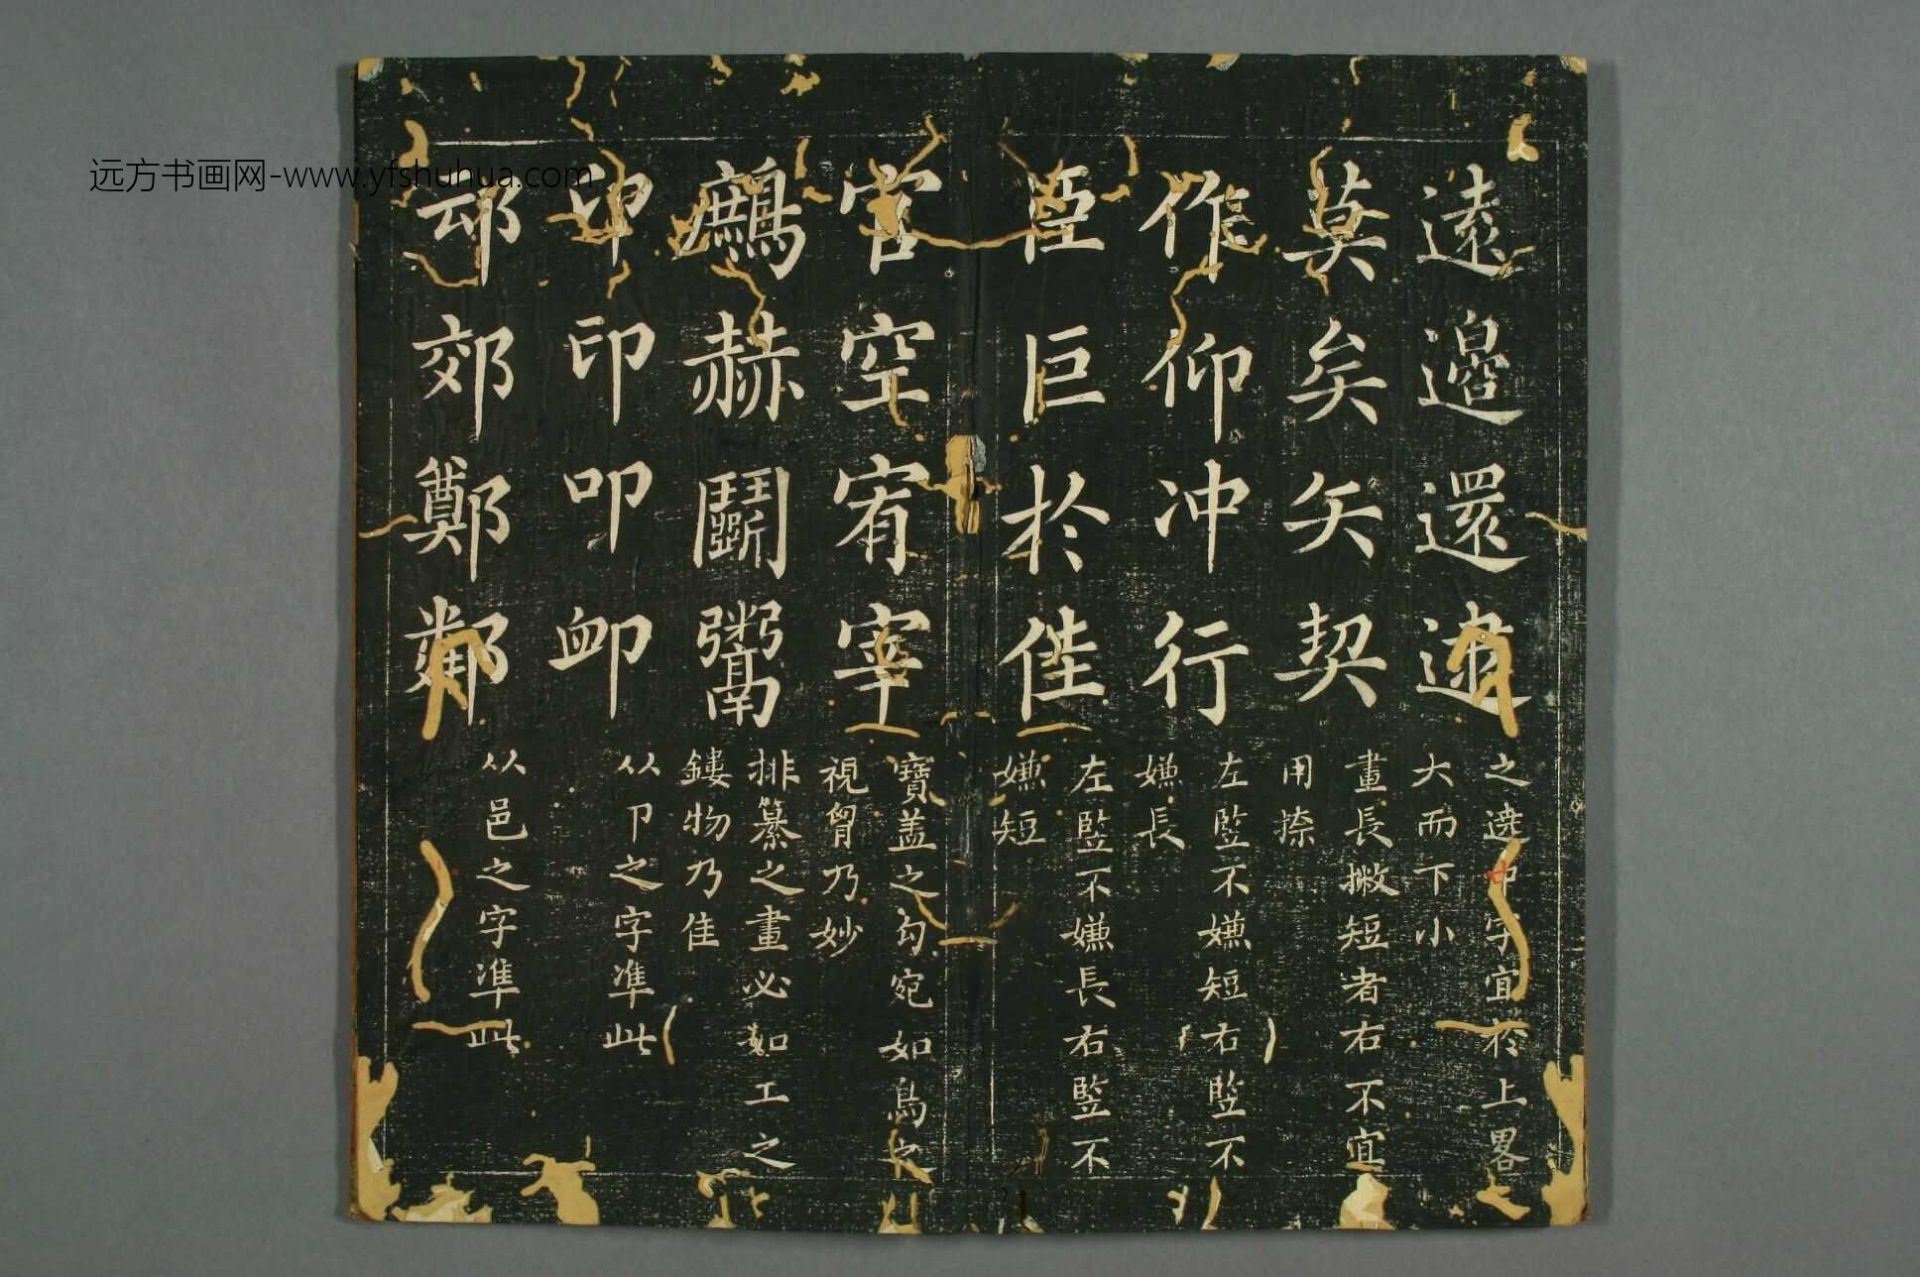 远方书画网-www.yfshuhua.com
遠邉還逮
之遶字宜於上畧
大而下小
莫矣矢契
畫長撇短者右不宜
用捺
作仰冲行
左竪不嫌短右竪不
嫌長
臣巨於隹
左竪不嫌長右竪不
嫌短
官空宥宰
寶盖之勾宛如鳥之
視胷乃妙
鷓赫鬭鬻
排纂之畫必如工之
鏤物乃佳
卬印叩卹
从卩之字凖此
邙郊鄭鄰
从邑之字凖此